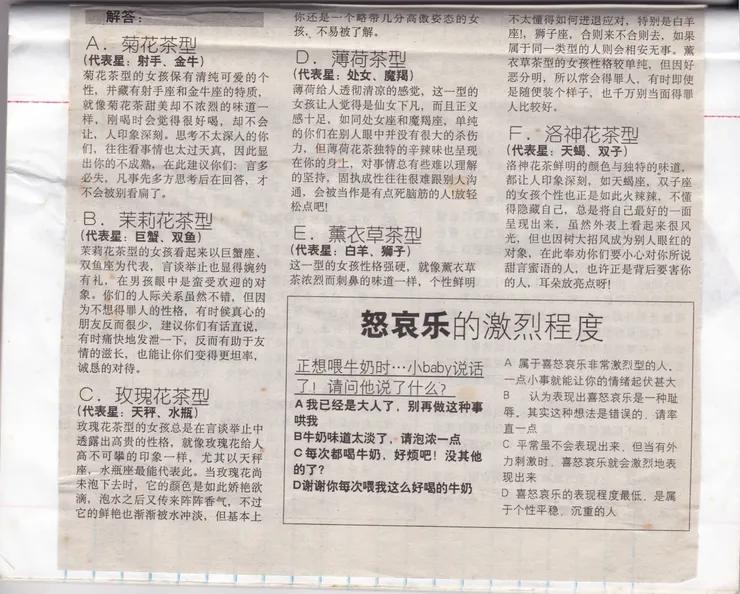 解答:
A. 菊花茶型
(代表星: 射手、金牛)
菊花茶型的女孩保有清纯可爱的个
性，并藏有射手座和金牛座的特质，
就像菊花茶甜美却不浓烈的味道一
样，刚喝时会觉得很好喝，却不会
让，人印象深刻。思考不太深入的你
们，往往看事情也太过天真，因此显
出你的不成熟，在此建议你们: 言多
必失，凡事先多方思考后在回答，才
不会被别看扁了。
B. 茉莉花茶型
(代表星: 巨蟹、双鱼)
茉莉花茶型的女孩看起来以巨蟹座、
双鱼座为代表，言谈举止也显得婉约
有礼，在男孩眼中是蛮受欢迎的对
象。你们的人际关系虽然不错，但因
为不想得罪人的性格，有时候真心的
朋友反而很少，建议你们有话直说，
有时痛快地发泄一下，反而有助于友
情的滋长，也能让你们变得更坦率，
诚恳的对待。
C. 玫瑰花茶型
(代表星: 天秤、水瓶)
玫瑰花茶型的女孩总是在言谈举止中
透露出高贵的性格，就像玫瑰花给人
高不可攀的印象一样，尤其以天秤
座、水瓶座最能代表此。当玫瑰花尚
未泡下去时，它的颜色是如此娇艳欲
滴，泡水之后又传来阵阵香气，不过
它的鲜艳也渐渐被水冲淡，但基本上
你还是一个略带几分高傲姿态的女
孩，不易被了解。
D. 薄荷茶型
(代表星: 处女、魔羯)
薄荷给人透彻清凉的感觉，这一型的
女孩让人觉得是仙女下凡，而且正义
感十足，如同处女座和魔羯座，单纯
的你们在别人眼中并没有很大的杀伤
力，但薄荷花茶独特的辛辣味也呈现
在你的身上，对事情总有些难以理解
的坚持，固执成性往往很难跟别人沟
通，会被当作是有点死脑筋的人!放轻
松点吧!
E. 薰衣草茶型
(代表星: 白羊、狮子)
这一型的女孩性格强硬，就像薰衣草
茶浓烈而刺鼻的味道一样，个性鲜明
不太懂得如何进退应对，特别是白羊
座!、狮子座，合则来不合则去，如果
属于同一类型的人则会相安无事。薰
衣草茶型的女孩性格较单纯，但因好
恶分明，所以常会得罪人，有时即使
是随便装个样子，也千万别当面得罪
人比较好。
F. 洛神花茶型
(代表星: 天蝎、双子)
洛神花茶鲜明的颜色与独特的味道，
都让人印象深刻，如天蝎座，双子座
的女孩个性也正是如此火辣辣，不懂
得隐藏自己，总是将自己最好的一面
呈现出来，虽然外表上看起来很风
光，但也因树大招风成为别人眼红的
对象，在此奉劝你们要小心对你所说
甜言蜜语的人，也许正是背后要害你
的人，耳朵放亮点呀!
怒哀乐的激烈程度
正想喂牛奶时…小baby说话
了! 请问他说了什么?
A我已经是大人了，别再做这种事
哄我
B牛奶味道太淡了，请泡浓一点
C每次都喝牛奶，好烦吧! 没其他
的了?
D谢谢你每次喂我这么好喝的牛奶
A 属于喜怒哀乐非常激烈型的人，
一点小事就能让你的情绪起伏甚大
B 认为表现出喜怒哀乐是一种耻
辱，其实这种想法是错误的，请率
直一点
C 平常虽不会表现出来，但当有外
力刺激时，喜怒哀乐就会激烈地表
现出来
D 喜怒哀乐的表现程度最低，是属
于个性平稳，沉重的人